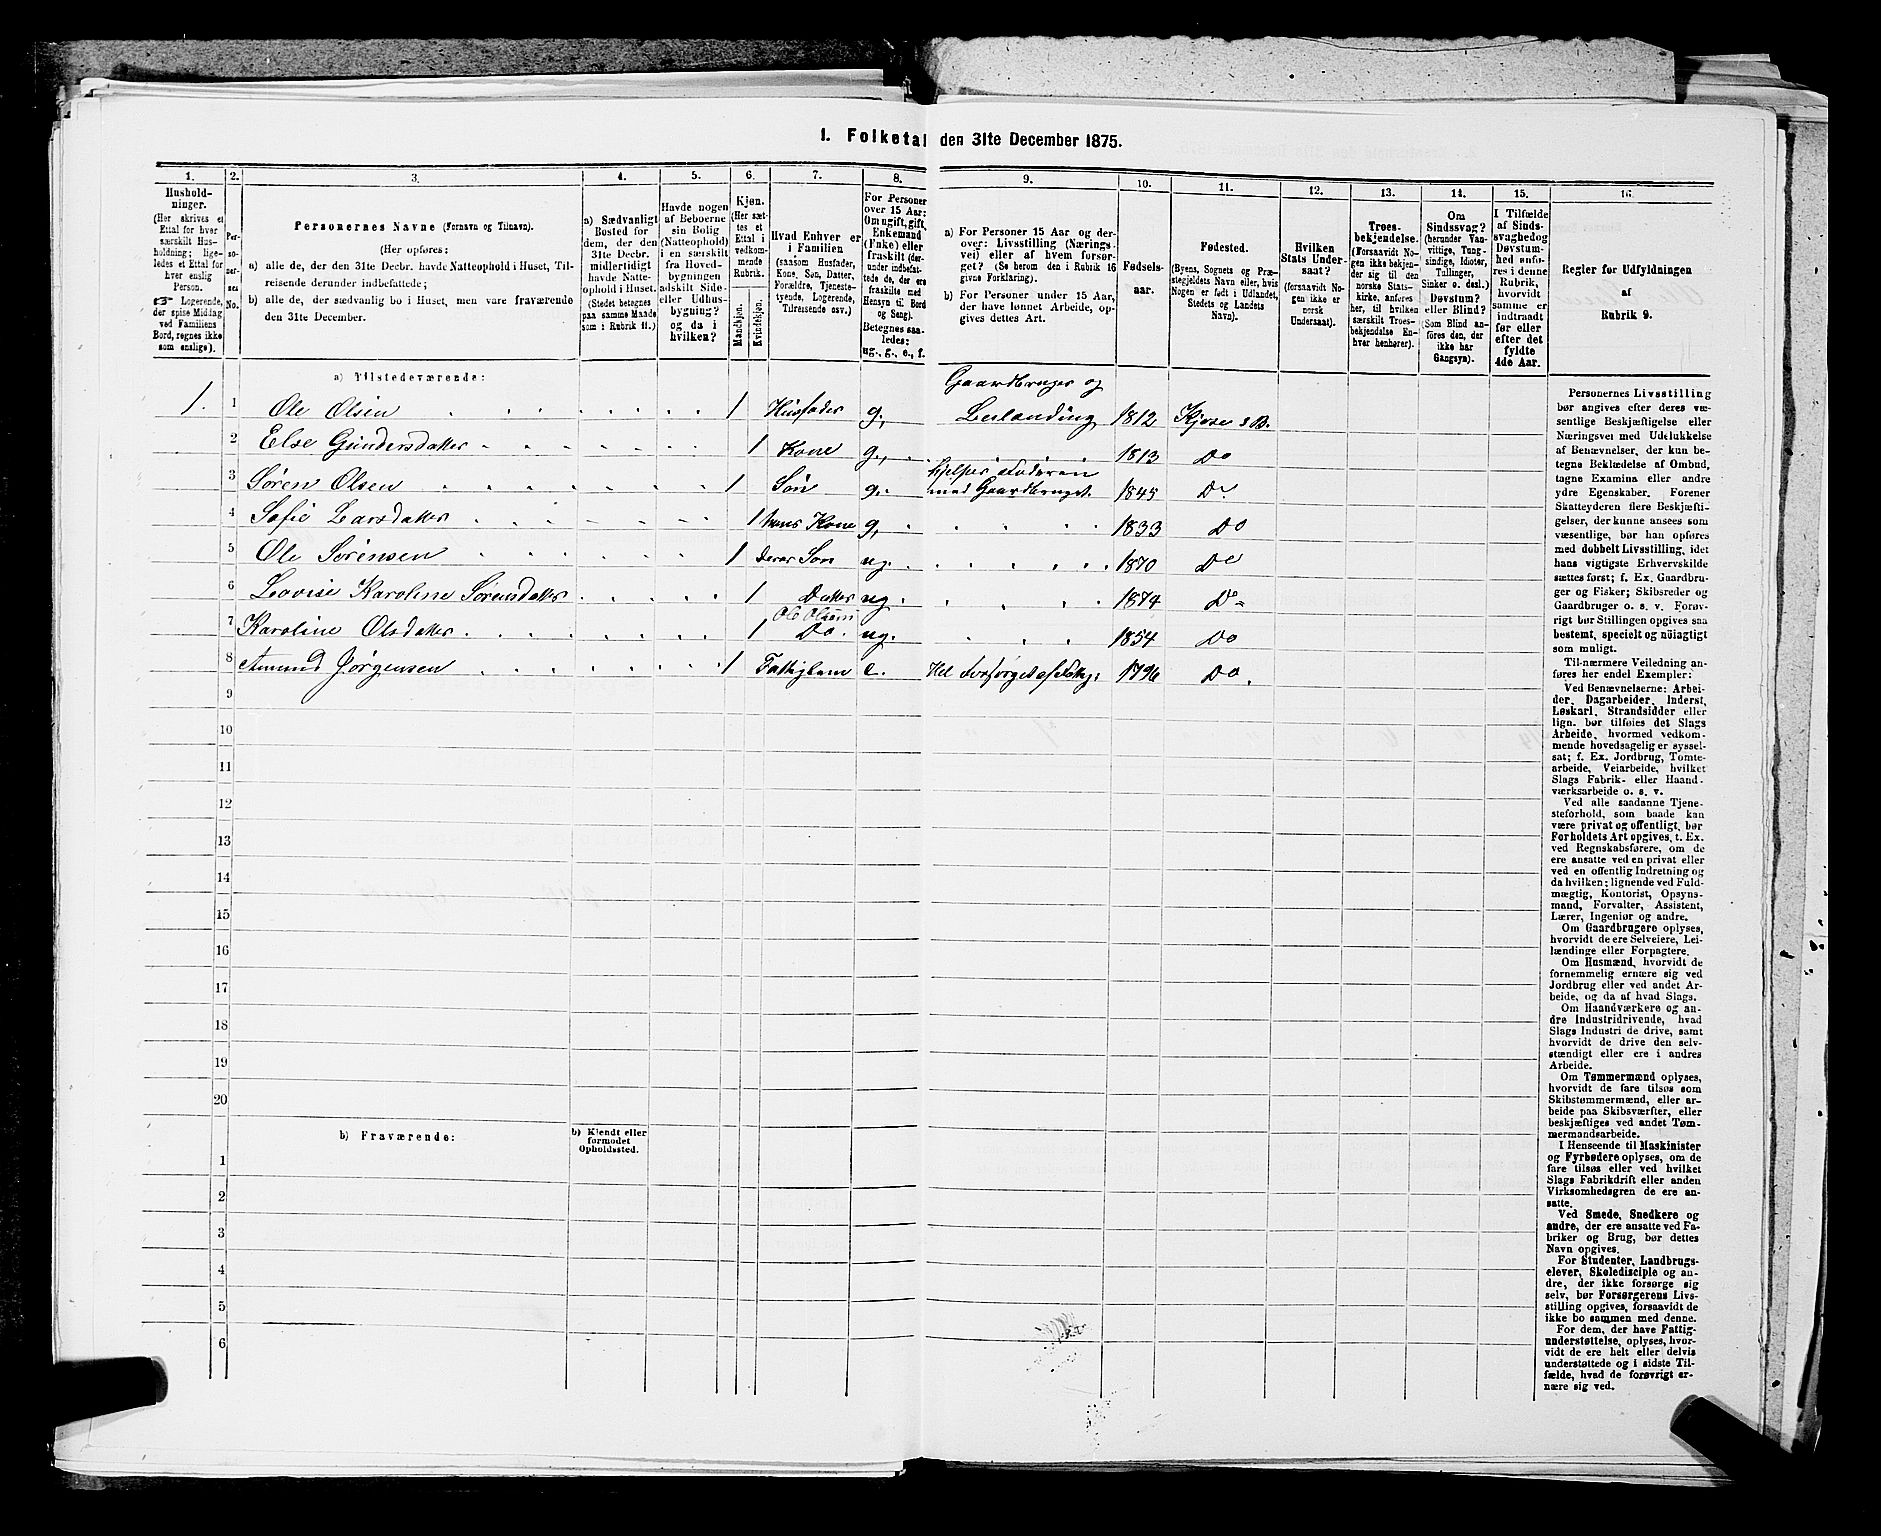 1. Folketal den 31te December 1875.
1.
Hushold-
ninger.
(Her skrives et
Ettal for hver
særskilt Hus-
holdning; lige-
ledes et Ettal for
hver enslig
Person.
☞ Logerende,
der spise Middag
ved Familiens
Bord, regnes ikke
som enslige).
2.
Per-
so-
ner-
nes
No.
3.
Personernes Navne (Fornavn og Tilnavn).
(Her opføres:
a) alle de, der den 31te Decbr. havde Natteophold i Huset, Til-
reisende derunder indbefattede;
b) alle de, der sædvanlig bo i Huset, men vare fraværende
den 31te December.
4.
a) Sædvanligt
Bosted for
dem, der den
31te Decbr.
midlertidigt
havde Natte-
ophold i Huset.
(Stedet betegnes
paa samme Maade
som i Rubrik 11.)
5.
Havde nogen
af Beboerne
sin Bolig
(Natteophold)
i en særskilt
fra Hoved-
bygningen
adskilt Side-
eller Udhus-
bygning?
og da i
hvilken?
6.
Kjøn.
(Her sæt-
tes et
Ettal i
vedkom-
mende
Rubrik.
Mandkjøn.
Kvindekjøn.
7.
Hvad Enhver er
i Familien
(saasom Husfader,
Kone, Søn, Datter,
Forældre, Tjeneste-
tyende, Logerende,
Tilreisende osv.)
8.
For Personer
over 15 Aar:
Om ugift, gift,
Enkemand
(Enke) eller
fraskilt (der-
under indbefat-
tede de, der ere
fraskilte med
Hensyn til Bord
og Seng).
Betegnes saa-
ledes:
ug., g., e., f.
9.
a) For Personer 15 Aar og der-
over: Livsstilling (Nærings-
vei) eller af hvem forsør-
get? (Se herom den i Rubrik 16
givne Forklaring).
b) For Personer under 15 Aar,
der have lønnet Arbeide, op-
gives dettes Art.
10.
Fødsels-
aar.
11.
Fødested.
(Byens, Sognets og Præ-
stegjeldets Navn eller, hvis
Nogen er født i Udlandet,
Stedets og Landets
Navn).
12.
Hvilken
Stats Under-
saat?
(forsaavidt No-
gen ikke er
norsk
Undersaat).
13.
Troes-
bekjendelse.
(Forsaavidt No-
gen ikke bekjen-
der sig til den
norske Stats-
kirke, anføres
her, til hvilken
særskilt Troes-
bekjendelse En-
hver henhører).
14.
Om
Sindssvag?
(herunder Van-
vittige, Tung-
sindige, Idioter,
Tullinger,
Sinker o. desl.)
Døvstum?
eller Blind?
(Som Blind an-
føres den, der
ikke har
Gangsyn).
15.
I Tilfælde
af Sinds-
svaghed og
Døvstum-
hed anfø-
res i denne
Rubrik,
hvorvidt
samme er
indtraadt
før eller
efter det
fyldte
4de Aar.
16.
Regler for Udfyldningen
af
Rubrik 9.
a) Tilstedeværende:
1. 1 Ole Olsen 1 Husfader g. Gaardbruger og Leilænding 1812 Kjose s B.
2 Else Gundersdatter 1 Kone g. 1813 Do
3 Søren Olsen 1 Søn g. hjelper Faderen med Gaardbruget. 1845 Do
4 Sofie Larsdatter 1 hans Kone g. 1833 Do
5 Ole Sørensen 1 deres Søn ug. 1870 Do
6 Lovise Karoline Sørensdatter 1 Datter ug. 1874 Do
7 Karoline Olsdatter 1 Ole Olsens Do. ug. 1854 Do
8 Amund Jørgensen 1 Fattiglem e. Hel forsørget af Fattigv. 1796 Do.
9
10
11
12
13
14
15
16
17
18
19
20
b) Fraværende:
b) Kjendt eller
formodet
Opholdssted.
1
2
3
4
5
6
Personernes Livsstilling
bør angives efter deres væ-
sentlige Beskjæftigelse eller
Næringsvei med Udelukkelse
af Benævnelser, der kun be-
tegne Beklædelse af Ombud,
tagne Examina eller andre
ydre Egenskaber. Forener
Skatteyderen flere Beskjæfti-
gelser, der kunne ansees som
væsentlige, bør han opføres
med dobbelt Livsstilling, idet
hans vigtigste Erhvervskilde
sættes først; f. Ex. Gaardbru-
ger og Fisker; Skibsreder og
Gaardbruger o. s. v. Forøv-
rigt bør Stillingen opgives saa
bestemt, specielt og nøiagtigt
som muligt.
Til nærmere Veiledning an-
føres her endel Exempler:
Ved Benævnelserne: Arbei-
der, Dagarbeider, Inderst,
Løskarl, Strandsidder eller
lign. bør tilføies det Slags
Arbeide, hvormed vedkom-
mende hovedsagelig er syssel-
sat; f. Ex. Jordbrug, Tomte-
arbeide, Veiarbeide, hvilket
Slags Fabrik- eller Haand-
værksarbeide o. s. v.
Ved alle saadanne Tjene-
steforhold, som baade kan
være privat og offentligt, bør
Forholdets Art opgives, t. Ex.
ved Regnskabsførere, om de
ere ansatte ved en privat eller
ved en offentlig Indretning og
da hvilken; lignende ved Fuld-
mægtig, Kontorist, Opsyns-
mand, Forvalter, Assistent,
Lærer, Ingeniør og andre.
Om Gaardbrugere oplyses,
hvorvidt de ere Selveiere, Lei-
lændinge eller Forpagtere.
Om Husmænd, hvorvidt de
fornemmelig ernære sig ved
Jordbrug eller ved andet Ar-
beide, og da af hvad Slags.
Om Haandværkere og an-
dre Industridrivende, hvad
Slags Industri de drive, samt
hvorvidt de drive den selv-
stændigt eller ere i andres
Arbeide.
Om Tømmermænd oplyses,
hvorvidt de fare tilsøs som
Skibstømmermænd, eller ar-
beide paa Skibsværfter, eller
beskjæftiges ved andet Tøm-
mermandsarbeide.
I Henseende til Maskinister
og Fyrbødere oplyses, om de
fare tilsøs eller ved hvilket
Slags Fabrikdrift eller anden
Virksomhedsgren de ere an-
satte.
Ved Smede, Snedkere og
andre, der ere ansatte ved Fa-
briker og Brug, bør dettes
Navn opgives.
For Studenter, Landbrugs-
elever, Skoledisciple og an-
dre, der ikke forsørge sig
selv, bør Forsørgerens Livs-
stilling opgives, forsaavidt de
ikke bo sammen med denne.
For dem, der have Fattig-
understøttelse, oplyses, hvor-
vidt de ere helt eller delvis
understøttede og i sidste Til-
fælde, hvad de forøvrigt er-
nære sig ved.